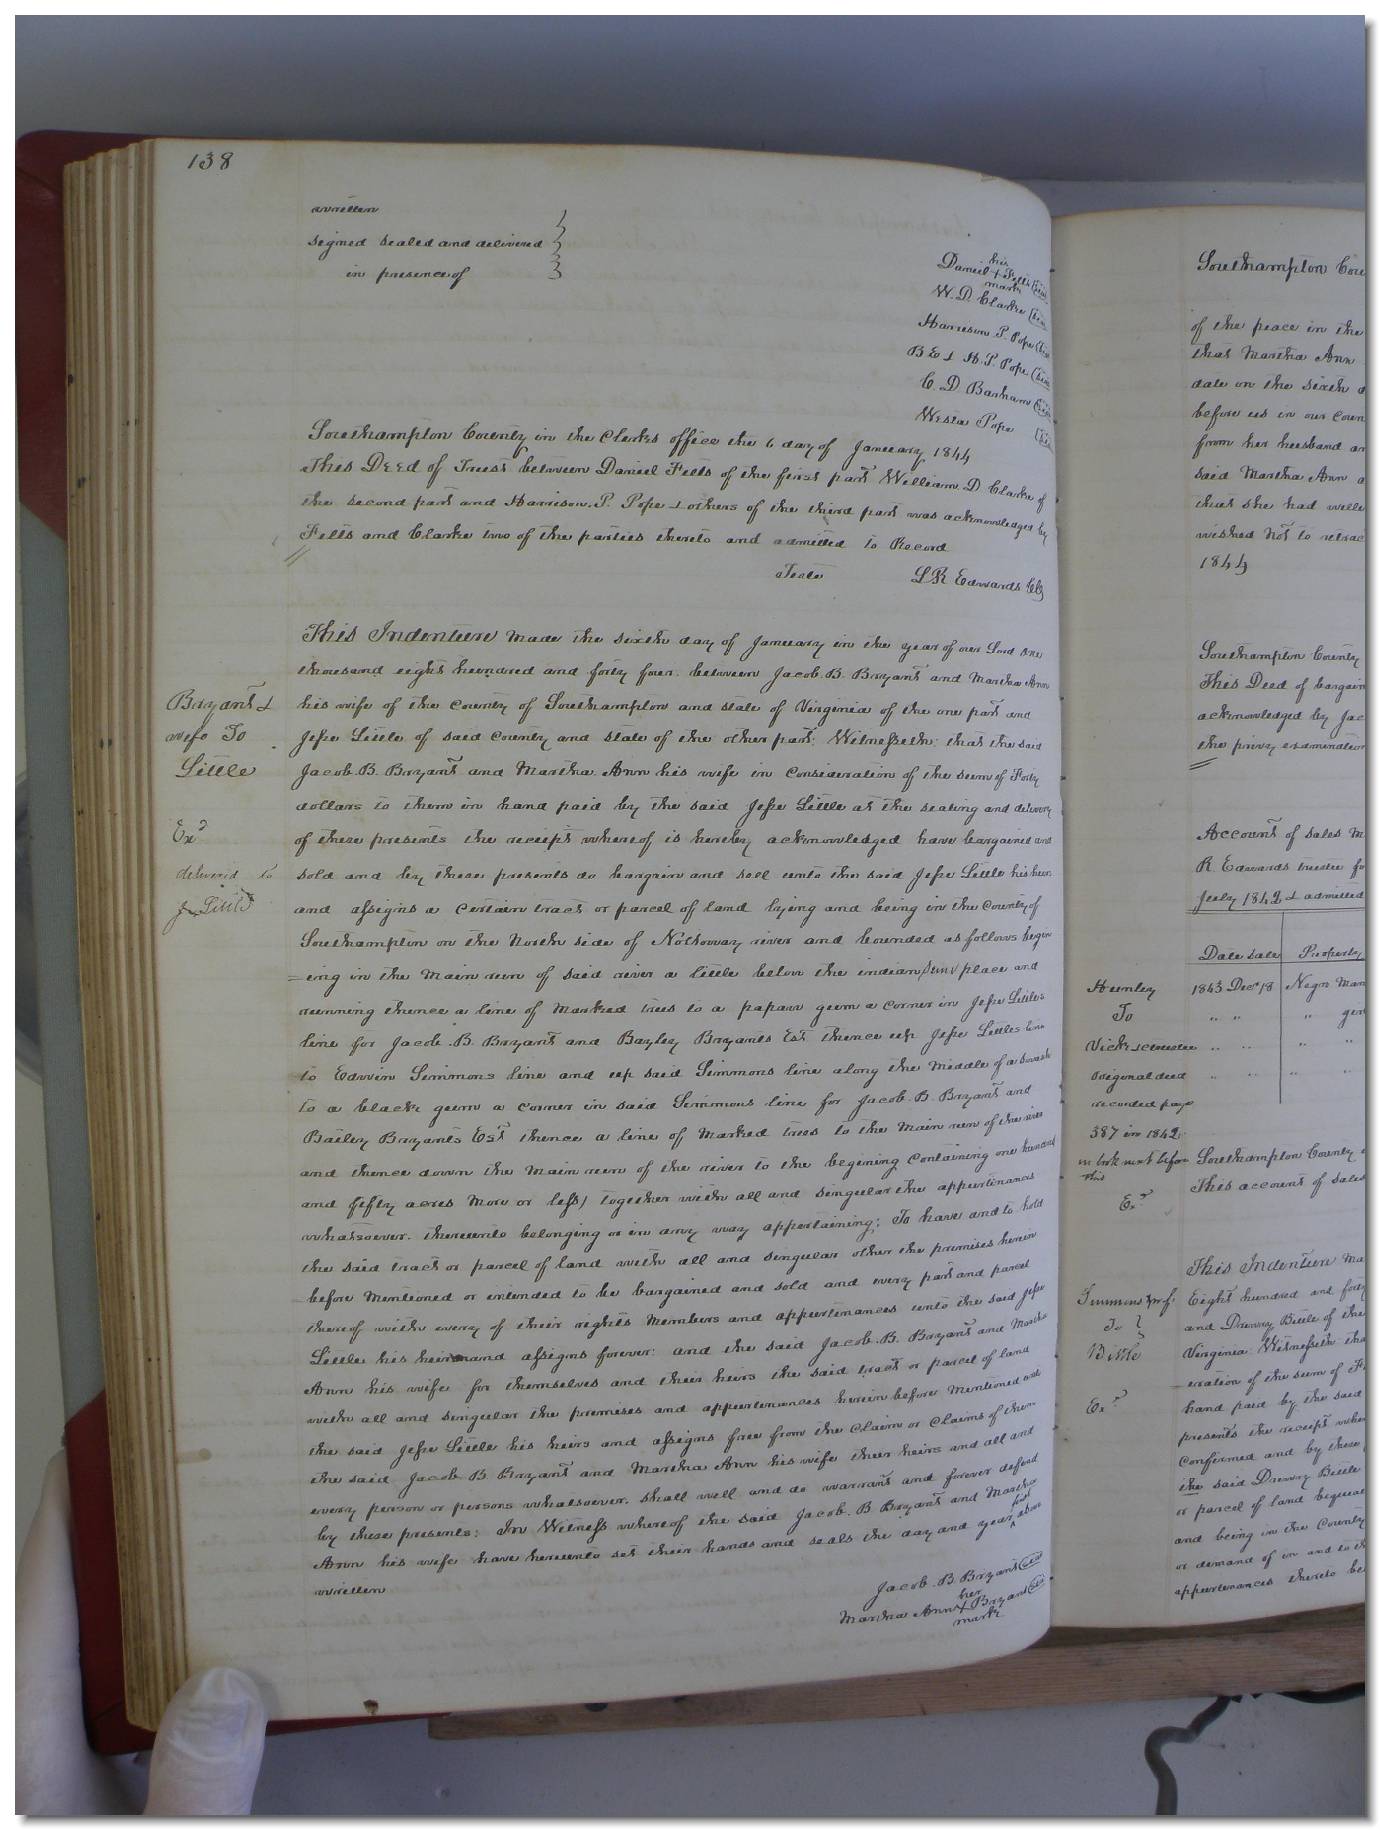 138
written
signed sealed and delivered
in presence of
his
Daniel + Felts (seal)
mark
W. D. Clarke (seal)
Harrison P. Pope (seal)
B E & H. P. Pope (seal)
C. D. Barham (seal)
Pope (seal)
Southampton County in the Clerks office the 6 day of January 1844
This Deed of Trust between Daniel Felts of the first part William D Clarke of
the second part and Harrison. P. Pope & others of the third part was acknowledged by
Felts and Clarke two of the parties thereto and admitted to Record
Teste L R Edwards Clk
Bryant &
wife To
Little
Exd
delivered to
J Little
This Indenture made the sixth day of January in the year of our Lord one
thousand eight hundred and forty four. between Jacob. B. Bryant and Martha Ann
his wife of the County of Southampton and state of Virginia of the one part and
Jesse Little of said County and state of the other part: Witnesseth: that the said
Jacob. B. Bryant and Martha. Ann his wife in Consideration of the sum of Forty
dollars to them in hand paid by the said Jesse Little at the sealing and delivery
of these presents the receipt whereof is hereby acknowledged have bargained and
sold and by these presents do bargain and sell unto the said Jesse Little his heirs
and assigns a Certain tract or parcel of land lying and being in the County of
Southampton on the North side of Nottoway river and bounded as follows begin
=eing in the Main run of said river a little below the indian place and
running thence a line of Marked trees to a papaw gum a corner in Jesse Littles
line for Jacob. B. Bryant and Bayley Bryants Est thence up Jesse Littles line
to Edwin Simmons line and up said Simmons line along the Middle of a swash
to a black gum a corner in said Simmons line for Jacob. B. Bryant and
Bailey Bryants Est thence a line of Marked trees to the Main run of the river
and thence down the Main run of the river to the begining Containing one hundred
and fifty acres More or less) together with all and singular the appurtenances
whatsoever. thereunto belonging or in any way appertaining; To have and to hold
the said tract or parcel of land with all and singular other the premises herein
before Mentioned or intended to be bargained and sold and every part and parcel
thereof with every of their rights Members and appurtenances unto the said Jesse
Little his heirs and assigns forever: and the said Jacob. B. Bryant and Martha
Ann his wife for themselves and their heirs the said tract or parcel of land
with all and singular the premises and appurtenances herein before Mentioned unto
the said Jesse Little his heirs and assigns free from the Claim or Claims of them
the said Jacob B. Bryant and Martha Ann his wife their heirs and all and
every person or persons whatsoever. shall well and do warrant and forever defend
by these presents: In Witness whereof the said Jacob. B Bryant and Martha
Ann his wife have hereunto set their hands and seals the day and year first above
written
Jacob. B. Bryant (seal)
her
Martha Ann + Bryant (seal)
mark
Southampton Cou
of the peace in the
that Martha Ann
date on the sixth d
before us in our Coun
from her husband an
said Martha Ann a
that she had wille
wished Not to retrac
1844
Southampton County
This Deed of bargain
acknowledged by Jac
the privy examination
Account of sales M
R. Edwards trustee fo
July 1842 & admitted
Date sale Property
1843 Decr 18 Negro Man
" " " gir
" " " "
" " " "
Hunley
To
Vicks trustee
original deed
recorded page
387 in 1842
in book next before
this
Exd
Southampton County
This account of sales
Simmons & wf.
To
Bittle
Exd
This Indenture Ma
Eight hundred and forty
and Drewry Bittle of the
Virginia Witnesseth tha
eration of the sum of F
hand paid by the said
presents the receipt whe
Confirmed and by these
the said Drewry Bittle
or parcel of land beque
and being in the County
or demand of in and to th
appurtenances thereto be